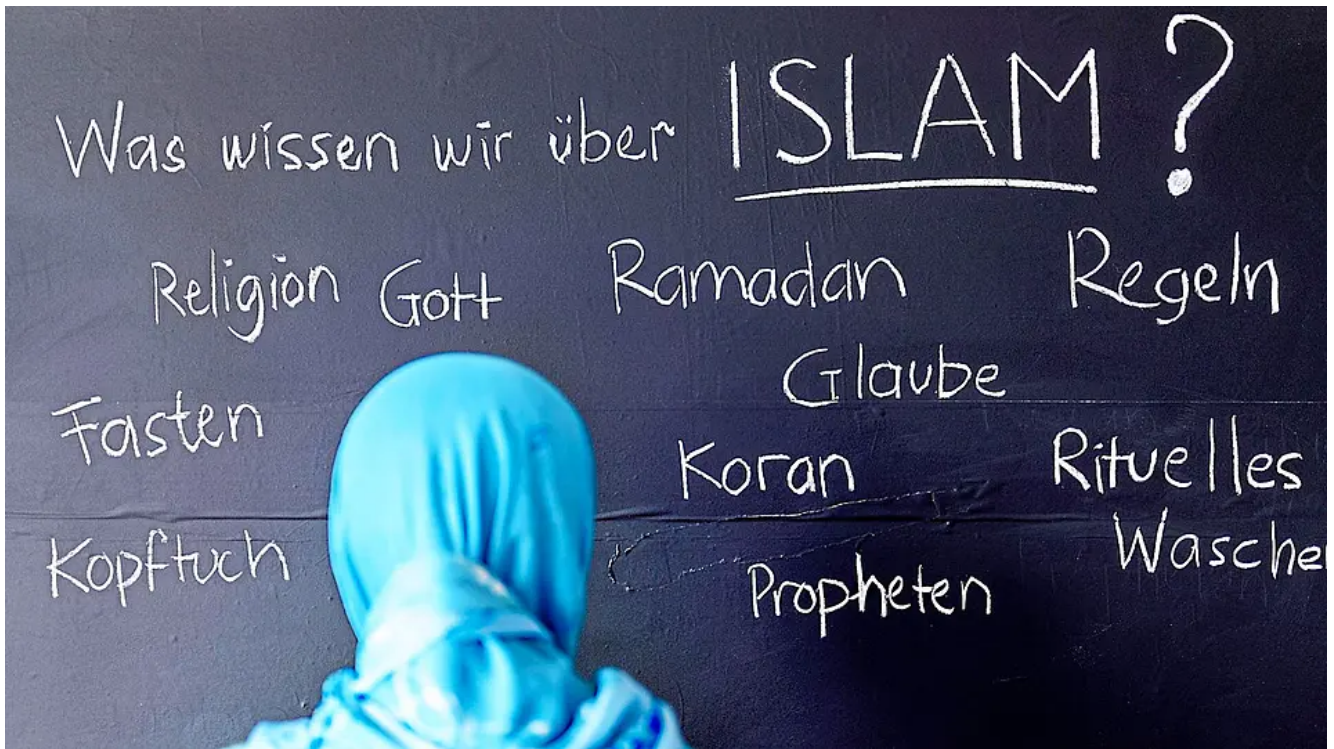 Was wissen wir über ISLAM?
Religion Gott Ramadan Regeln
Glaube
Fasten Koran Rituelles
Kopftuch Propheten Wasche